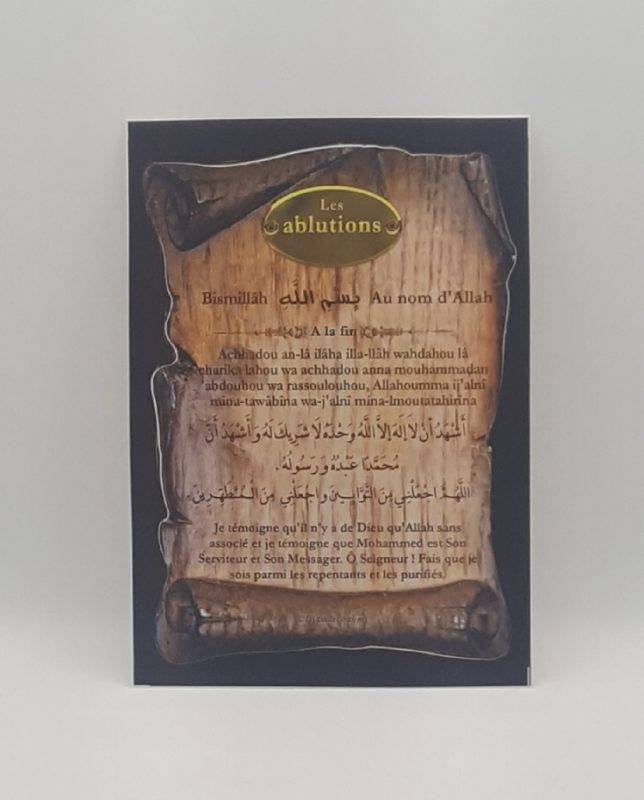 Les
ablutions
Bismillâh بِسْمِ اللَّهِ Au nom d'Allah
A la fin
Achhadou an-lâ ilâha illa-llâh wahdahou lâ
charika lahou wa achhadou anna mouhammadan
'abdouhou wa rassoulouhou, Allahoumma ij'alnî
mina-tawâbîna wa-j'alnî mina-lmoutatahirîna
أَشْهَدُ أَنْ لاَ إِلَهَ إِلاَّ اللَّهُ وَحْدَهُ لاَ شَرِيكَ لَهُ وَأَشْهَدُ أَنَّ
مُحَمَّدًا عَبْدُهُ وَرَسُولُهُ.
اللَّهُمَّ اجْعَلْنِي مِنَ التَّوَّابِينَ وَاجْعَلْنِي مِنَ الْمُتَطَهِّرِينَ.
Je témoigne qu'il n'y a de Dieu qu'Allah sans
associé et je témoigne que Mohammed est Son
Serviteur et Son Messager. Ô Seigneur ! Fais que je
sois parmi les repentants et les purifiés.